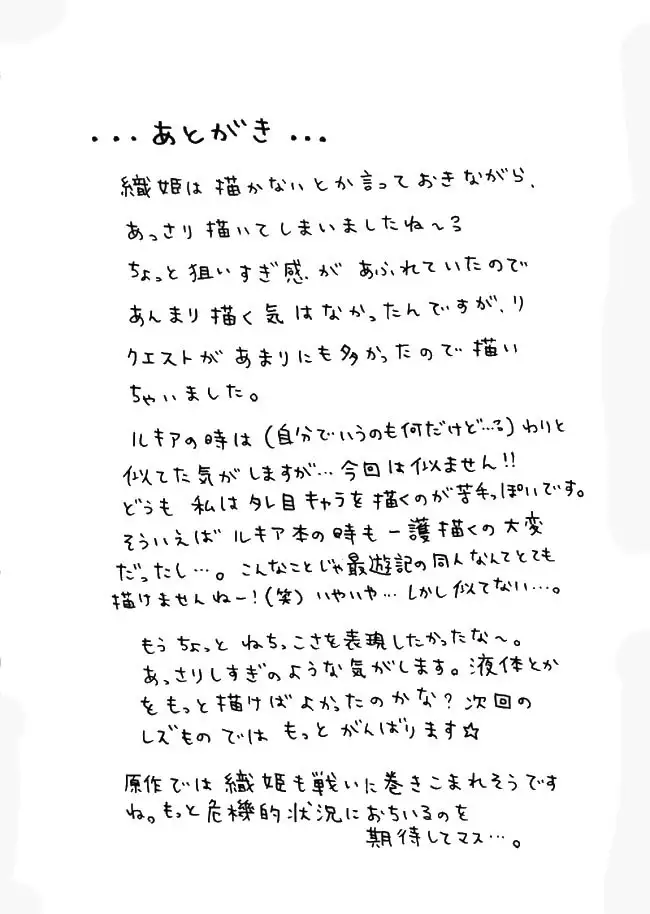 ・・・あとがき・・・
織姫は描かないとか言っておきながら、
あっさり描いてしまいましたね～る
ちょっと狙いすぎ感があふれていたので
あんまり描く気はなかったんですが、リ
クエストがあまりにも多かったので描い
ちゃいました。
ルキアの時は(自分でいうのも何だけど…る)わりと
似てた気がしますが…今回は似ません!!
どうも私はタレ目キャラを描くのが苦手っぽいです。
そういえばルキア本の時も一護描くの大変
だったし…。こんなことじゃ最遊記の同人なんてとても
描けませんねー!(笑)いやいや…しかし似てない…。
もうちょっとねちっこさを表現したかったな～。
あっさりしすぎのような気がします。液体とか
をもっと描けばよかったのかな?次回の
レズものではもっとがんばります☆
原作では織姫も戦いに巻きこまれそうです
ね。もっと危機的状況におちいるのを
期待してマス…。